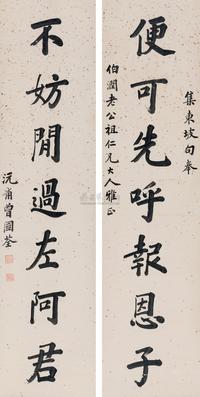 集東坡句奉
便可先呼報恩子
伯潤老公祖仁兄大人雅正
不妨閒過左阿君
沅甫曾國荃